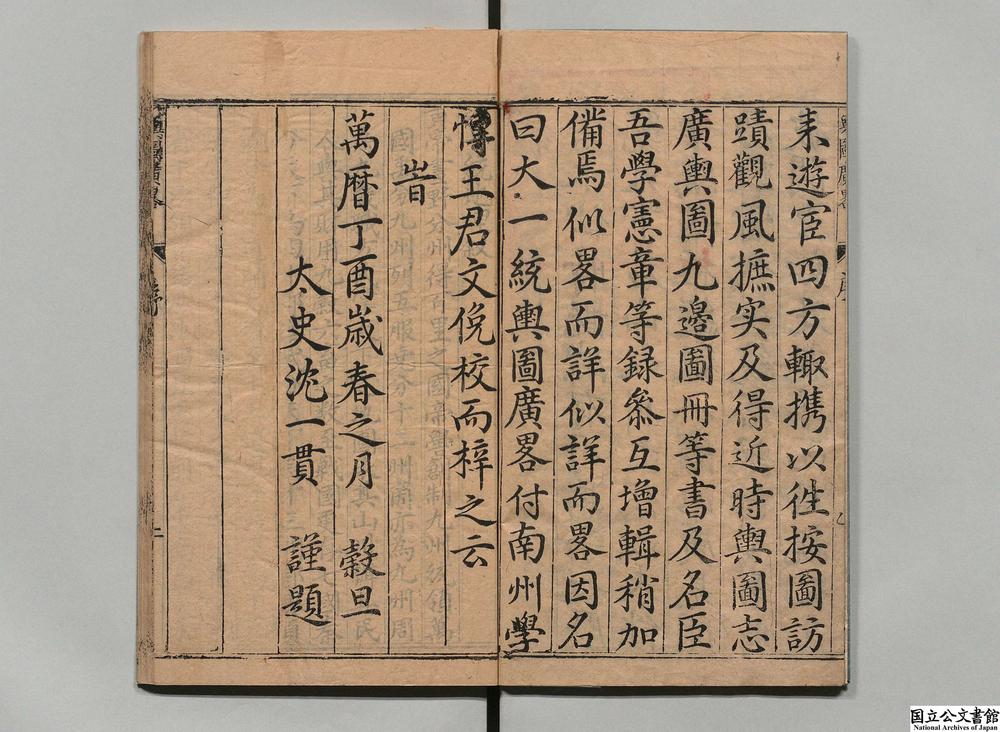 来遊宦四方輙携以徃按圖訪
蹟觀風摭实及得近時輿圖志
廣輿圖九邉圖冊等書及名臣
吾學憲章等録叅互增輯稍加
備焉似畧而詳似詳而畧因名
曰大一統輿圖廣畧付南州學
愽王君文俛校而梓之云
旹
萬曆丁酉歲春之月糓旦
太史沈一貫 謹題
輿圖廣畧
序
二
国立公文書館
National Archives of Japan